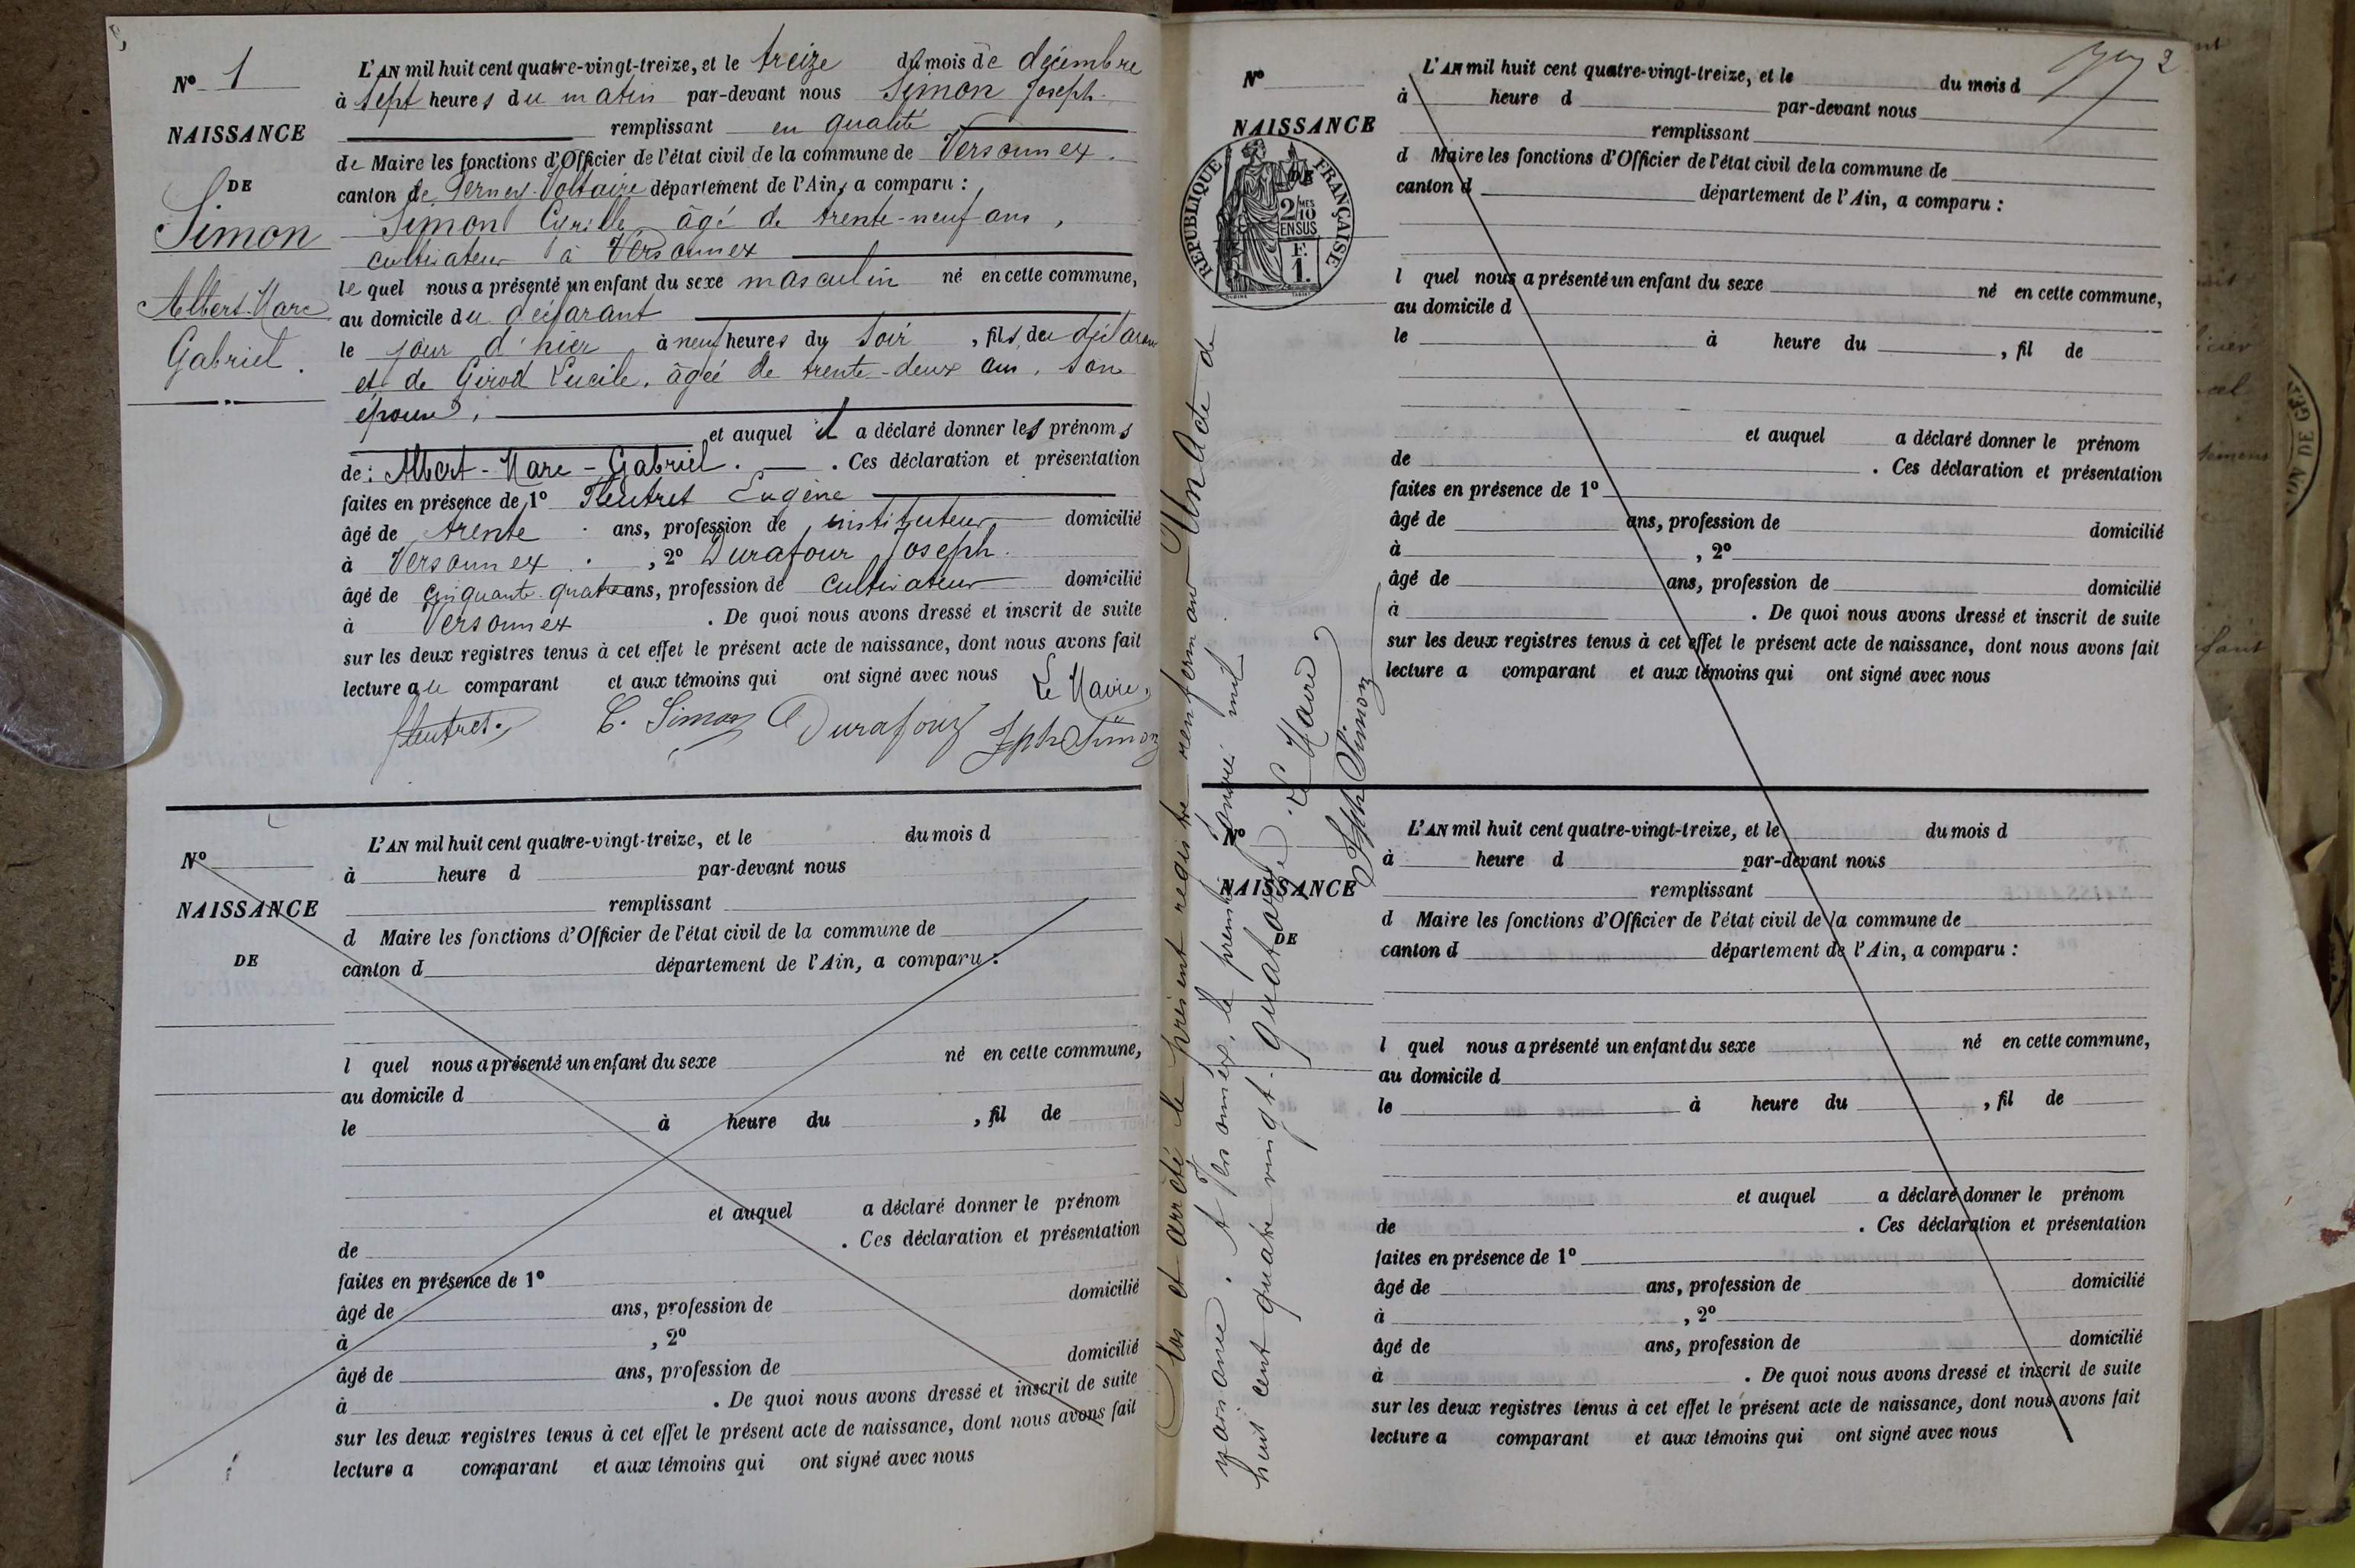 N° 1
NAISSANCE
DE
Simon
Albert-Marc
Gabriel.
L'AN mil huit cent quatre-vingt-treize, et le treize du mois de décembre
à sept heures du matin par-devant nous Simon Joseph
remplissant en qualité
de Maire les fonctions d'Officier de l'état civil de la commune de Versonnex.
canton de Ferney-Voltaire département de l'Ain, a comparu :
Simon Cyrille, âgé de trente-neuf ans,
cultivateur à Versonnex
le quel nous a présenté un enfant du sexe masculin né en cette commune,
au domicile du déclarant
le jour d'hier à neuf heures du soir, fils du déclarant
et de Girod Lucile, âgée de trente-deux ans, son
épouse,
et auquel il a déclaré donner les prénoms
de : Albert-Marc-Gabriel. Ces déclaration et présentation
faites en présence de 1° Fleutret Eugène
âgé de trente ans, profession de instituteur domicilié
à Versonnex, 2° Durafour Joseph
âgé de cinquante-quatre ans, profession de cultivateur domicilié
à Versonnex. De quoi nous avons dressé et inscrit de suite
sur les deux registres tenus à cet effet le présent acte de naissance, dont nous avons fait
lecture au comparant et aux témoins qui ont signé avec nous
Le Maire,
fleutret. C. Simon Durafour Jph Simon
N°
NAISSANCE
DE
L'AN mil huit cent quatre-vingt-treize, et le du mois d
à heure d par-devant nous
remplissant
d Maire les fonctions d'Officier de l'état civil de la commune de
canton d département de l'Ain, a comparu :
l quel nous a présenté un enfant du sexe né en cette commune,
au domicile d
le à heure du , fil de
et auquel a déclaré donner le prénom
de . Ces déclaration et présentation
faites en présence de 1°
âgé de ans, profession de domicilié
à , 2°
âgé de ans, profession de domicilié
à . De quoi nous avons dressé et inscrit de suite
sur les deux registres tenus à cet effet le présent acte de naissance, dont nous avons fait
lecture a comparant et aux témoins qui ont signé avec nous
Clos et arrêté le présent registre renfermant Un Acte de
naissance. A Versonnex, le premier janvier mil
huit cent quatre vingt-quatorze. Le Maire
Jph Simon
2
N°
NAISSANCE
DE
RÉPUBLIQUE FRANÇAISE
2/10 MES
EN SUS
F.
1.
L'AN mil huit cent quatre-vingt-treize, et le du mois d
à heure d par-devant nous
remplissant
d Maire les fonctions d'Officier de l'état civil de la commune de
canton d département de l'Ain, a comparu :
l quel nous a présenté un enfant du sexe né en cette commune,
au domicile d
le à heure du , fil de
et auquel a déclaré donner le prénom
de . Ces déclaration et présentation
faites en présence de 1°
âgé de ans, profession de domicilié
à , 2°
âgé de ans, profession de domicilié
à . De quoi nous avons dressé et inscrit de suite
sur les deux registres tenus à cet effet le présent acte de naissance, dont nous avons fait
lecture a comparant et aux témoins qui ont signé avec nous
N°
NAISSANCE
DE
L'AN mil huit cent quatre-vingt-treize, et le du mois d
à heure d par-devant nous
remplissant
d Maire les fonctions d'Officier de l'état civil de la commune de
canton d département de l'Ain, a comparu :
l quel nous a présenté un enfant du sexe né en cette commune,
au domicile d
le à heure du , fil de
et auquel a déclaré donner le prénom
de . Ces déclaration et présentation
faites en présence de 1°
âgé de ans, profession de domicilié
à , 2°
âgé de ans, profession de domicilié
à . De quoi nous avons dressé et inscrit de suite
sur les deux registres tenus à cet effet le présent acte de naissance, dont nous avons fait
lecture a comparant et aux témoins qui ont signé avec nous